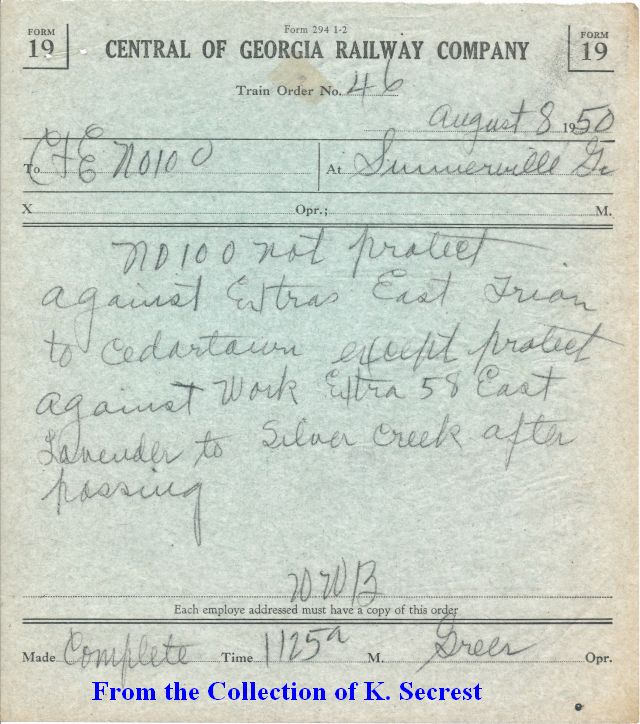 Form 294 1-2
FORM 19 CENTRAL OF GEORGIA RAILWAY COMPANY FORM 19
Train Order No. 46
August 8 1950
To C&E No 100 At Summerville Ga
X Opr.; M.
No 100 not protect
against Extras East Trion
to Cedartown except protect
against Work Extra 58 East
Lavender to Silver Creek after
passing
WWB
Each employe addressed must have a copy of this order
Made Complete Time 1125a M. Greer Opr.
From the Collection of K. Secrest